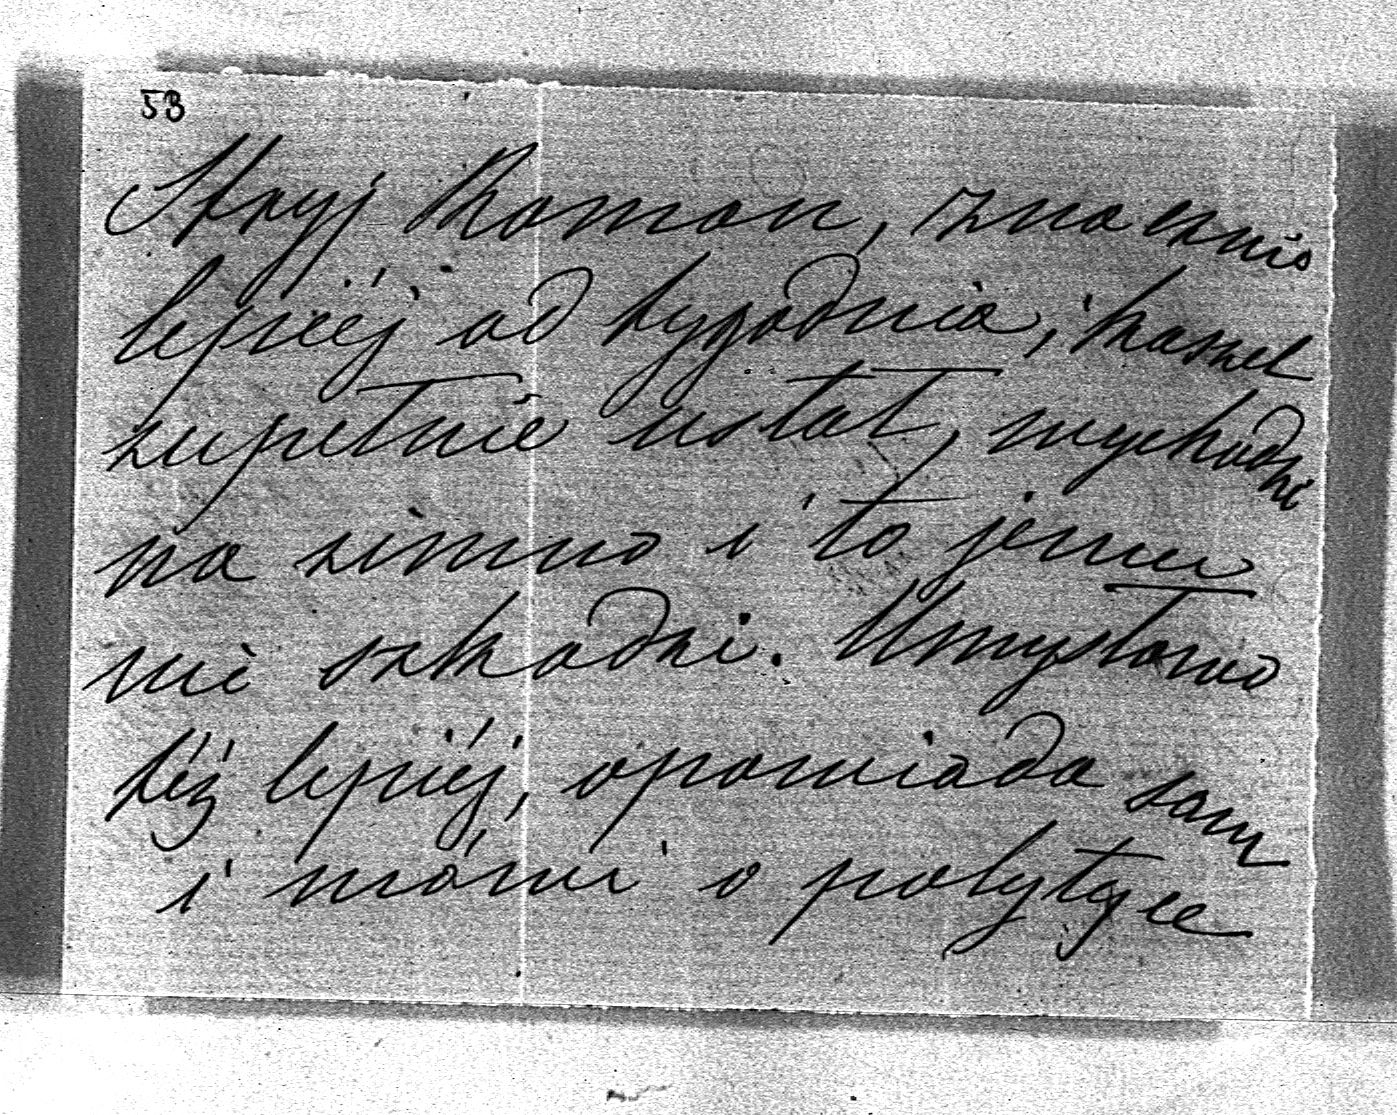 53
Stryj Roman, znacznie
lepiéj od tygodnia, kaszel
zupełnie ustał, wychodzi
na zimno i to jemu
nie szkodzi. Umysłowo
też lepiéj, opowiada sam
i mówi o polytyce